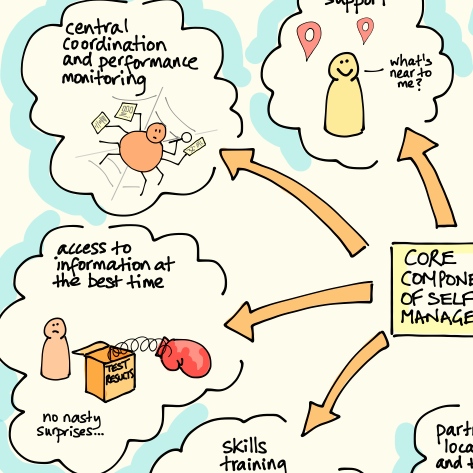 central
coordination
and performance
monitoring
support
what's
near to
me?
access to
information at
the best time
TEST
RESULTS
no nasty
surprises...
CORE
OF SELF
skills
training
and